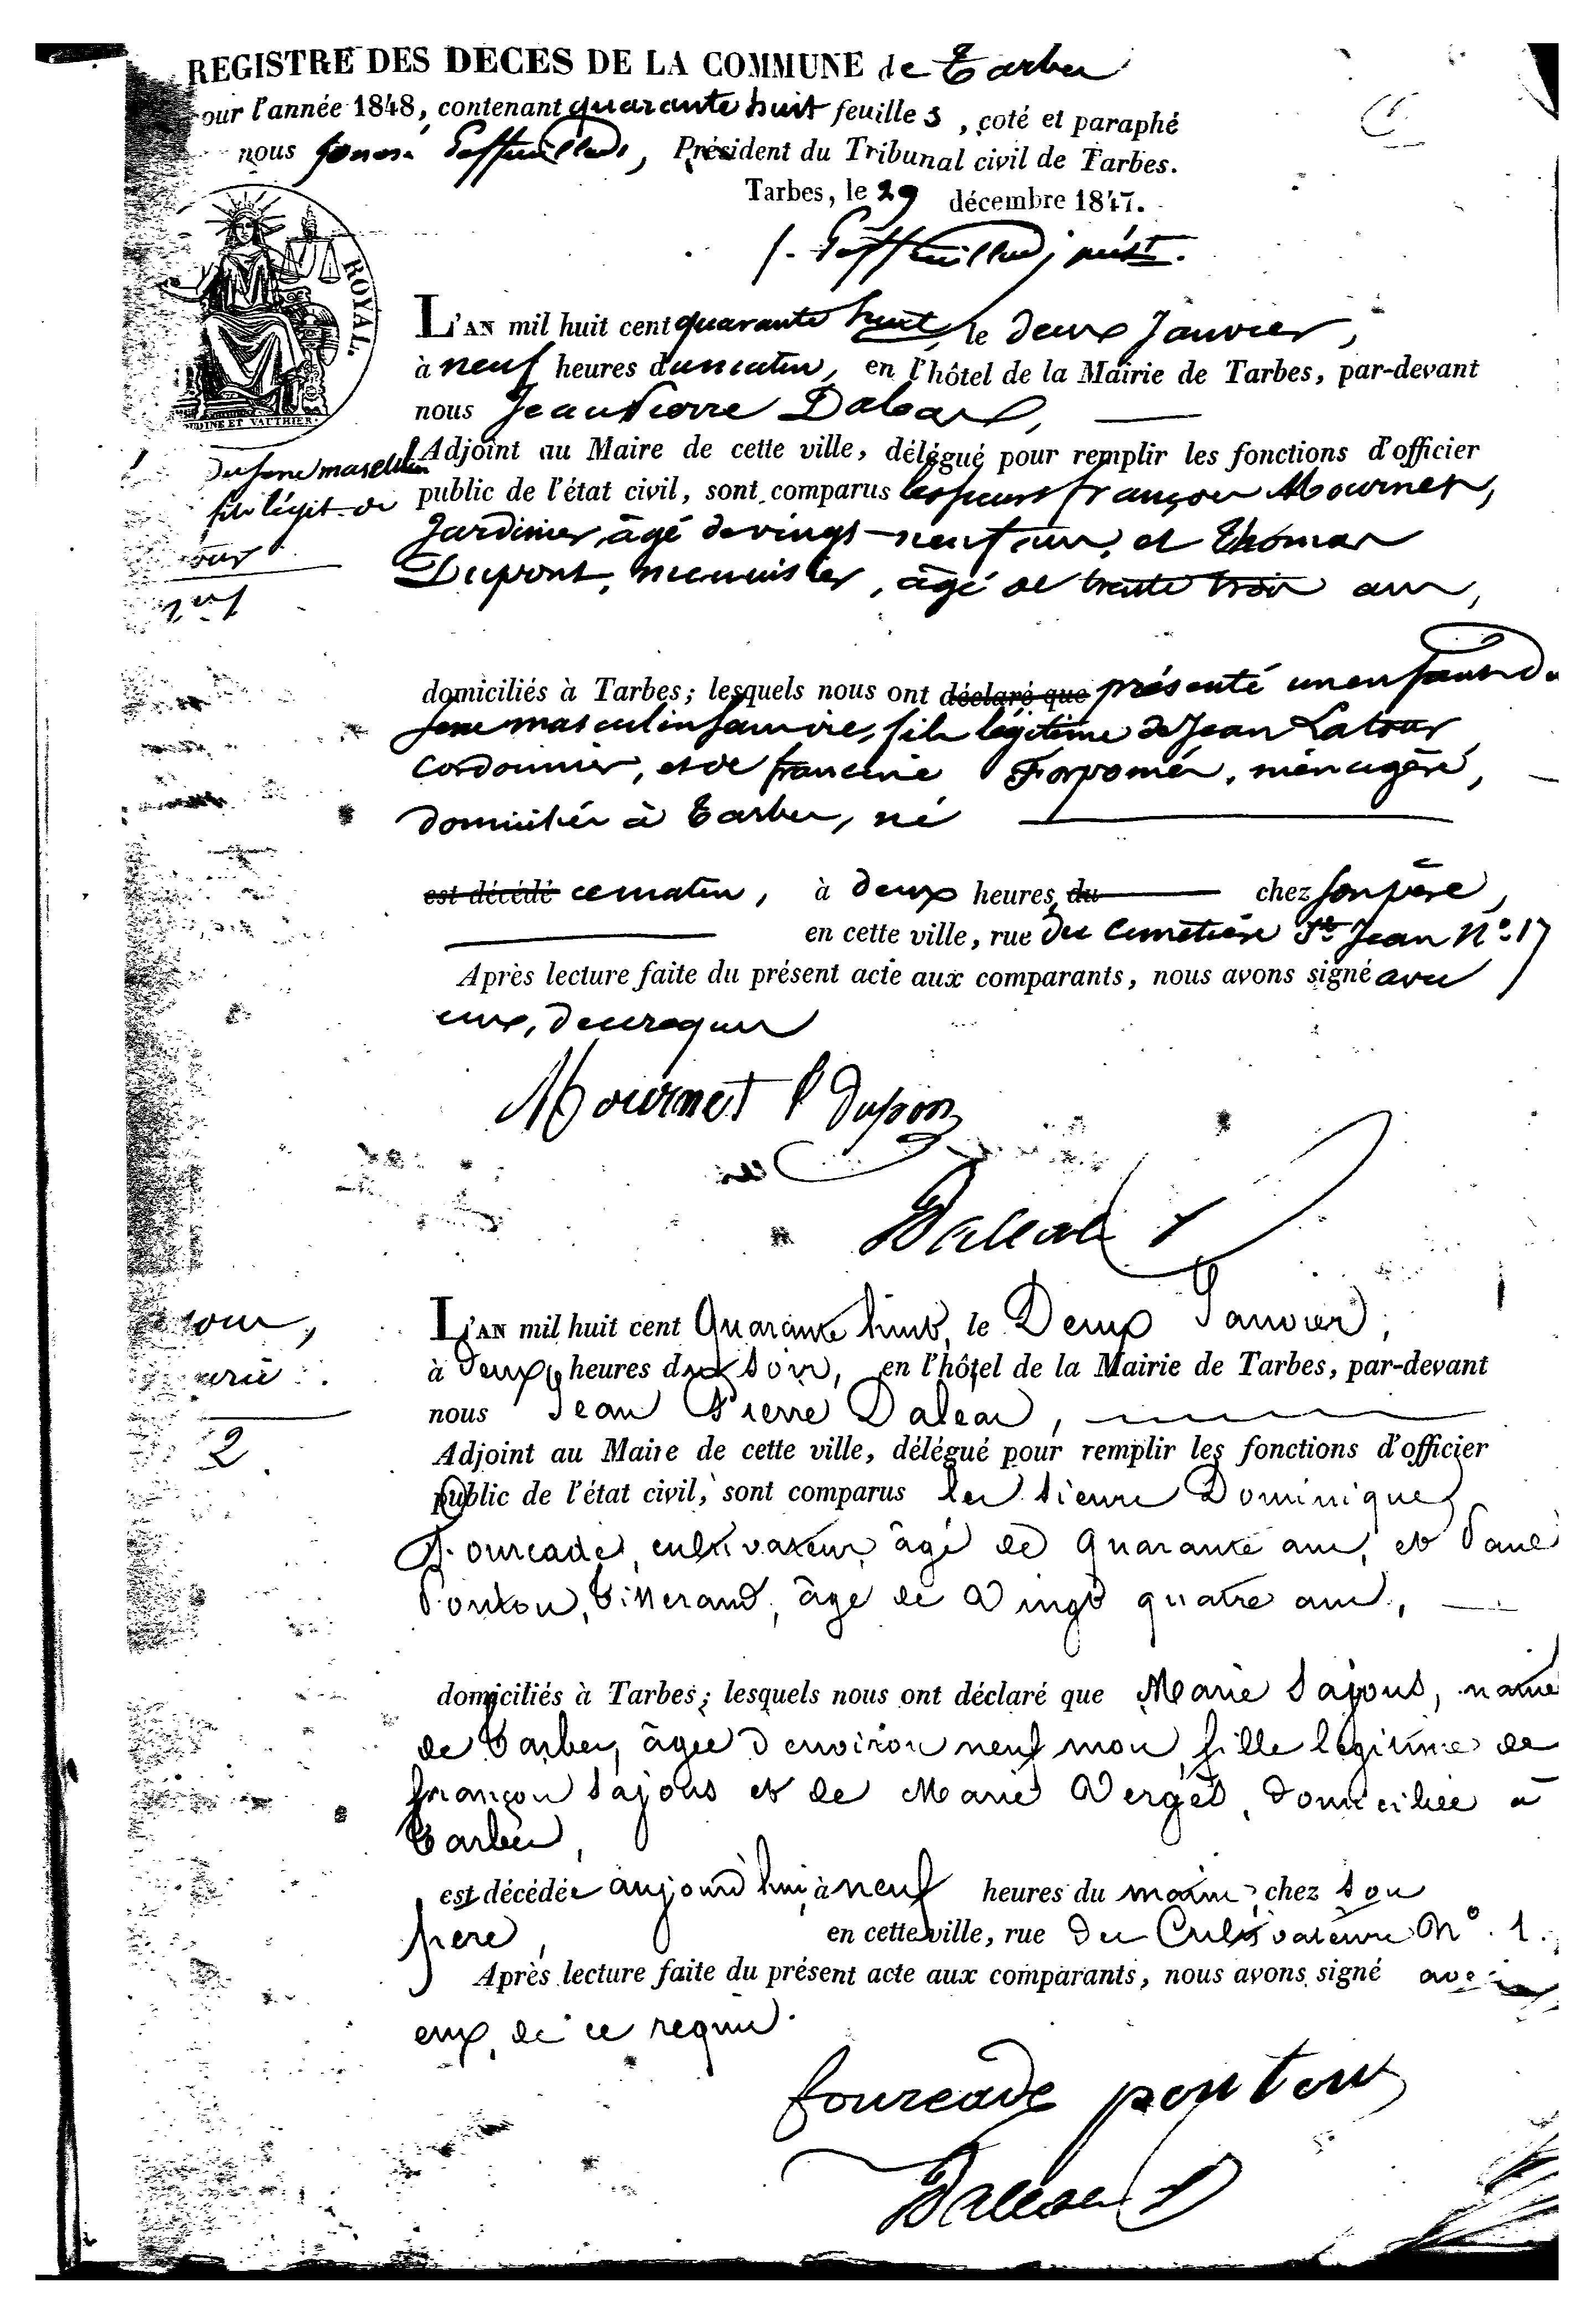 REGISTRE DES DÉCES DE LA COMMUNE de Tarbes
our l'année 1848, contenant quarante huit feuilles, coté et paraphé
nous , Président du Tribunal civil de Tarbes.
Tarbes, le 29 décembre 1847.
ROYAL.
ET VAUTHIER.
L'AN mil huit cent quarante huit, le deux Janvier,
à neuf heures du matin, en l'hôtel de la Mairie de Tarbes, par-devant
nous Jean Pierre Daléas,
Adjoint au Maire de cette ville, délégué pour remplir les fonctions d'officier
du sexe masculin
public de l'état civil, sont comparus les sieurs françois Mournet,
fils légit. de
Jardinier, âgé de vingt-neuf ans, et Thomas
our
Dupont, menuisier, âgé de trente trois ans,
domiciliés à Tarbes; lesquels nous ont déclaré que présenté un enfant du
sexe masculin sans vie, fils légitime de Jean Latour
cordonnier, et de francine , ménagère,
domiciliés à Tarbes, né
est décédé ce matin, à deux heures du chez son père,
en cette ville, rue du Cimetière St Jean N° 17
Après lecture faite du présent acte aux comparants, nous avons signé avec
eux, de ce requis
Mournet Dupon
Daléas
L'AN mil huit cent Quarante huit, le Deux Janvier,
à deux heures du soir, en l'hôtel de la Mairie de Tarbes, par-devant
nous Jean Pierre Daléas,
2.
Adjoint au Maire de cette ville, délégué pour remplir les fonctions d'officier
public de l'état civil, sont comparus les sieurs Dominique
Fourcade, cultivateur, âgé de Quarante ans, et Paul
Ponton, Tisserand, âgé de Vingt quatre ans,
domiciliés à Tarbes; lesquels nous ont déclaré que Marie Sajous, native
de Tarbes, âgée d'environ neuf mois, fille légitime de
françois Sajous et de Marie Vergès, domiciliée à
Tarbes,
est décédée aujourd'hui, à neuf heures du matin, chez son
père, en cette ville, rue des Cultivateurs N°. 1.
Après lecture faite du présent acte aux comparants, nous avons signé avec
eux, de ce requis.
fourcade ponton
Daléas